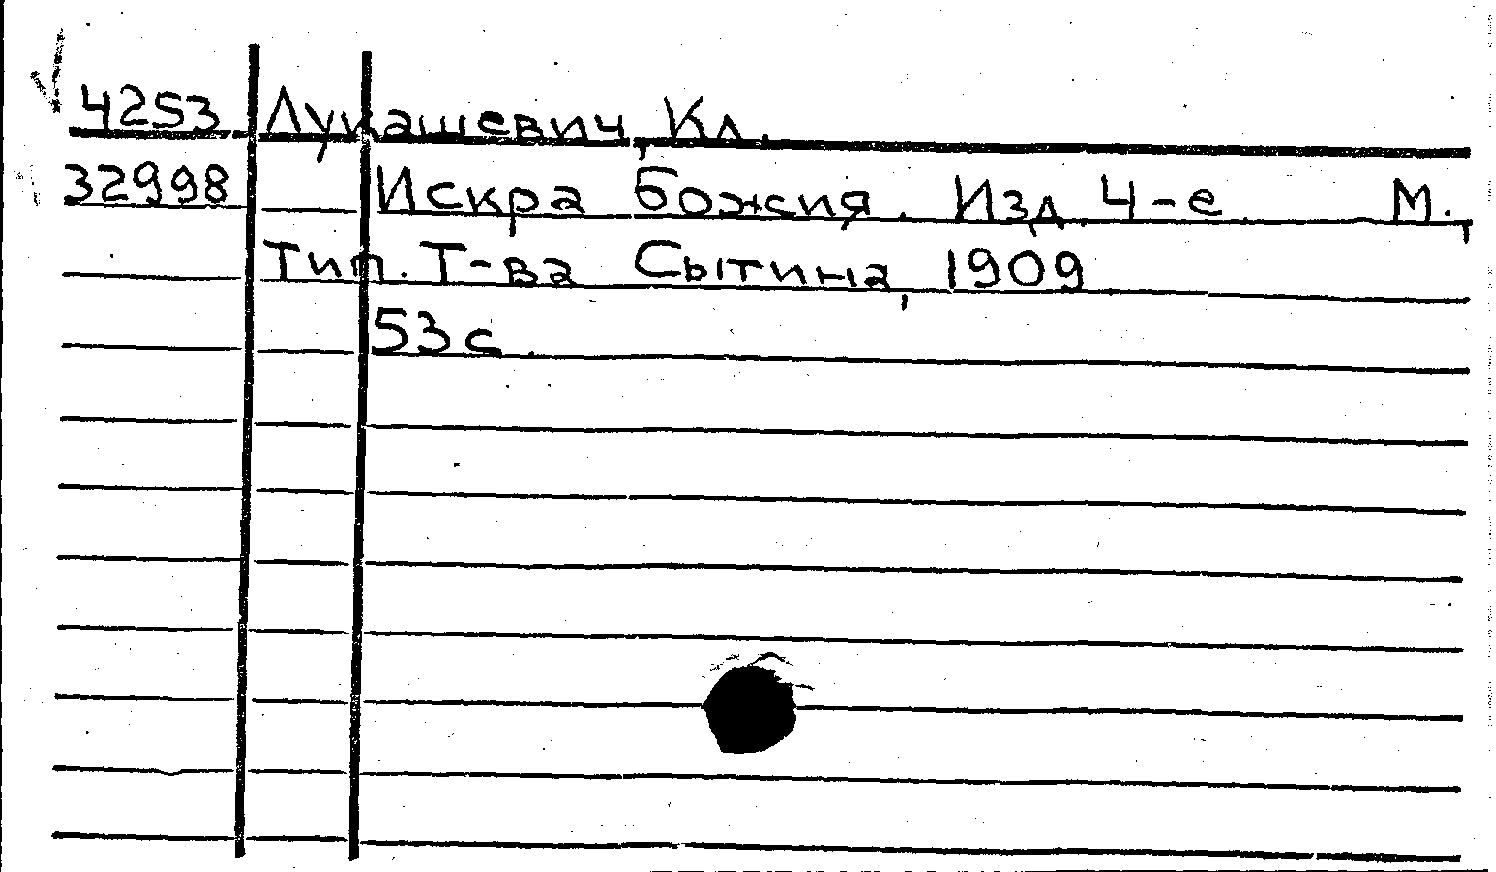 4253 Лукашевич, Кл.
32998 Искра божия. Изд. 4-е. М.,
Тип. Т-ва Сытина, 1909.
53 с.